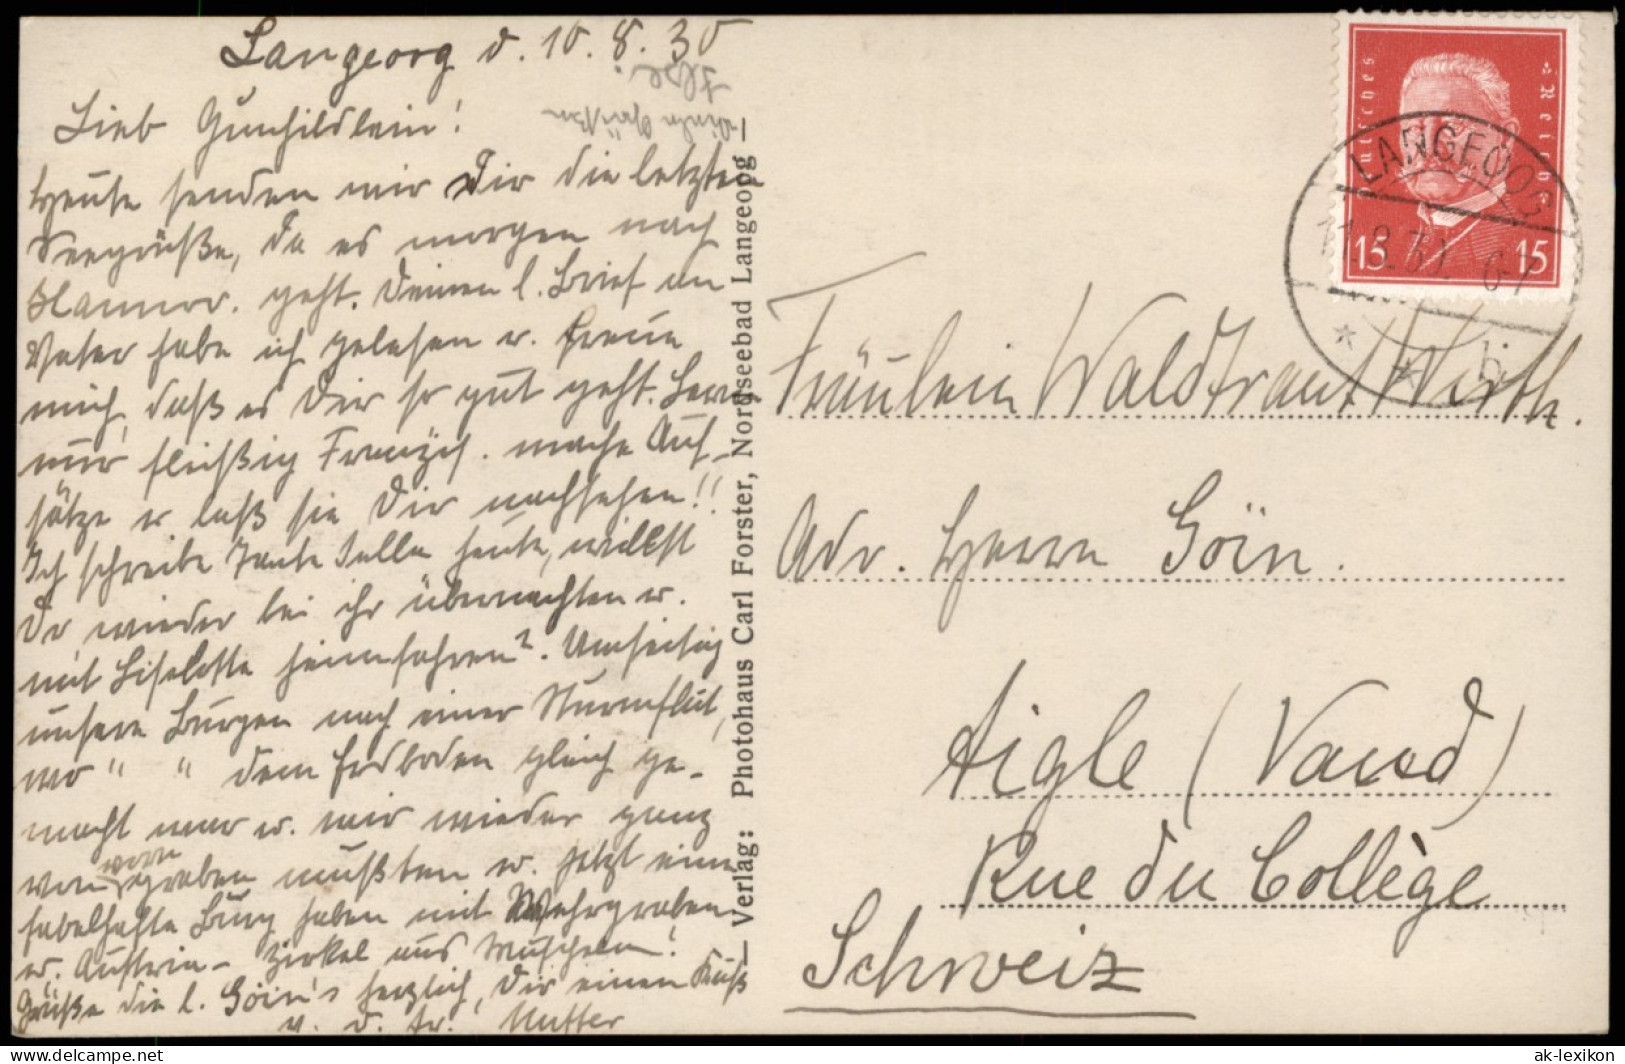 Langeoog d. 10.8.30
Lieb Gunhildlein!
Heute senden wir Dir die letzten
Seegrüße, da es morgen nach
Hannov. geht. Deinen l. Brief an
Vater habe ich gelesen u. freue
mich, daß es Dir so gut geht. Lerne
nur fleißig Franzçs. mache Auf-
sätze u laß sie Dir nachsehen!!
Ich schreibe Tante heute, willst
Du wieder bei ihr übernachten u.
mit Liselotte heimfahren?. Umseitig
unsere Burgen nach einer Sturmflut,
wo " " dem Erdboden gleich ge-
macht war u. wir wieder ganz
von vorn graben mußten u. jetzt eine
fabelhafte Burg haben mit Wehrgraben
u. Austern- Zirkel aus Muscheln!
Grüße die l. Göin's herzlich, Dir einen Kuß
v. d. tr. Mutter
Viele Grüße
Ilse.
— Verlag: Photohaus Carl Forster, Nordseebad Langeoog —
Deutsches Reich
15 15
LANGEOOG
11.8.30. 6-7
* * b
Fräulein Waldtraut Wirth.
Adr. Herrn Göin.
Aigle (Vaud)
Rue du Collège
Schweiz
ak-lexikon.de
delcampe.net